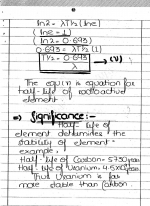 ln2 = λT½(lne)
(lne = 1)
ln2 = 0.693
0.693 = λT½(1)
T½ = 0.693 → (v)
λ
The eq(v) is equation for
half-life of radioactive
element.
⇒ Significance:-
Half-life of
element determines the
stability of element
example,
Half-life of Carbon = 5730 years
Half-life of Uranium = 4.5x10⁹
That Uranium is far
more stable than Carbon.